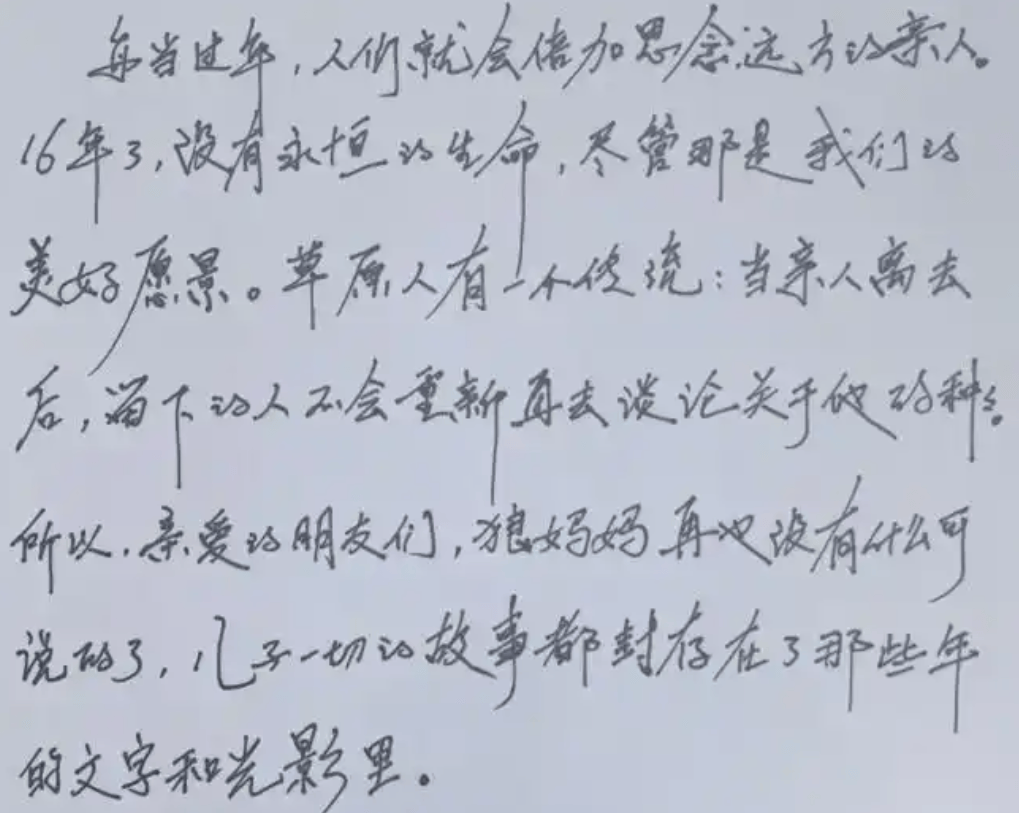 每当过年,人们就会倍加思念远方的亲人。
16年了,没有永恒的生命,尽管那是我们的
美好愿景。草原人有一个传统:当亲人离去
后,留下的人不会重新再去谈论关于他的种种。
所以,亲爱的朋友们,狼妈妈再也没有什么可
说的了,儿子一切的故事都封存在了那些年
的文字和光影里。